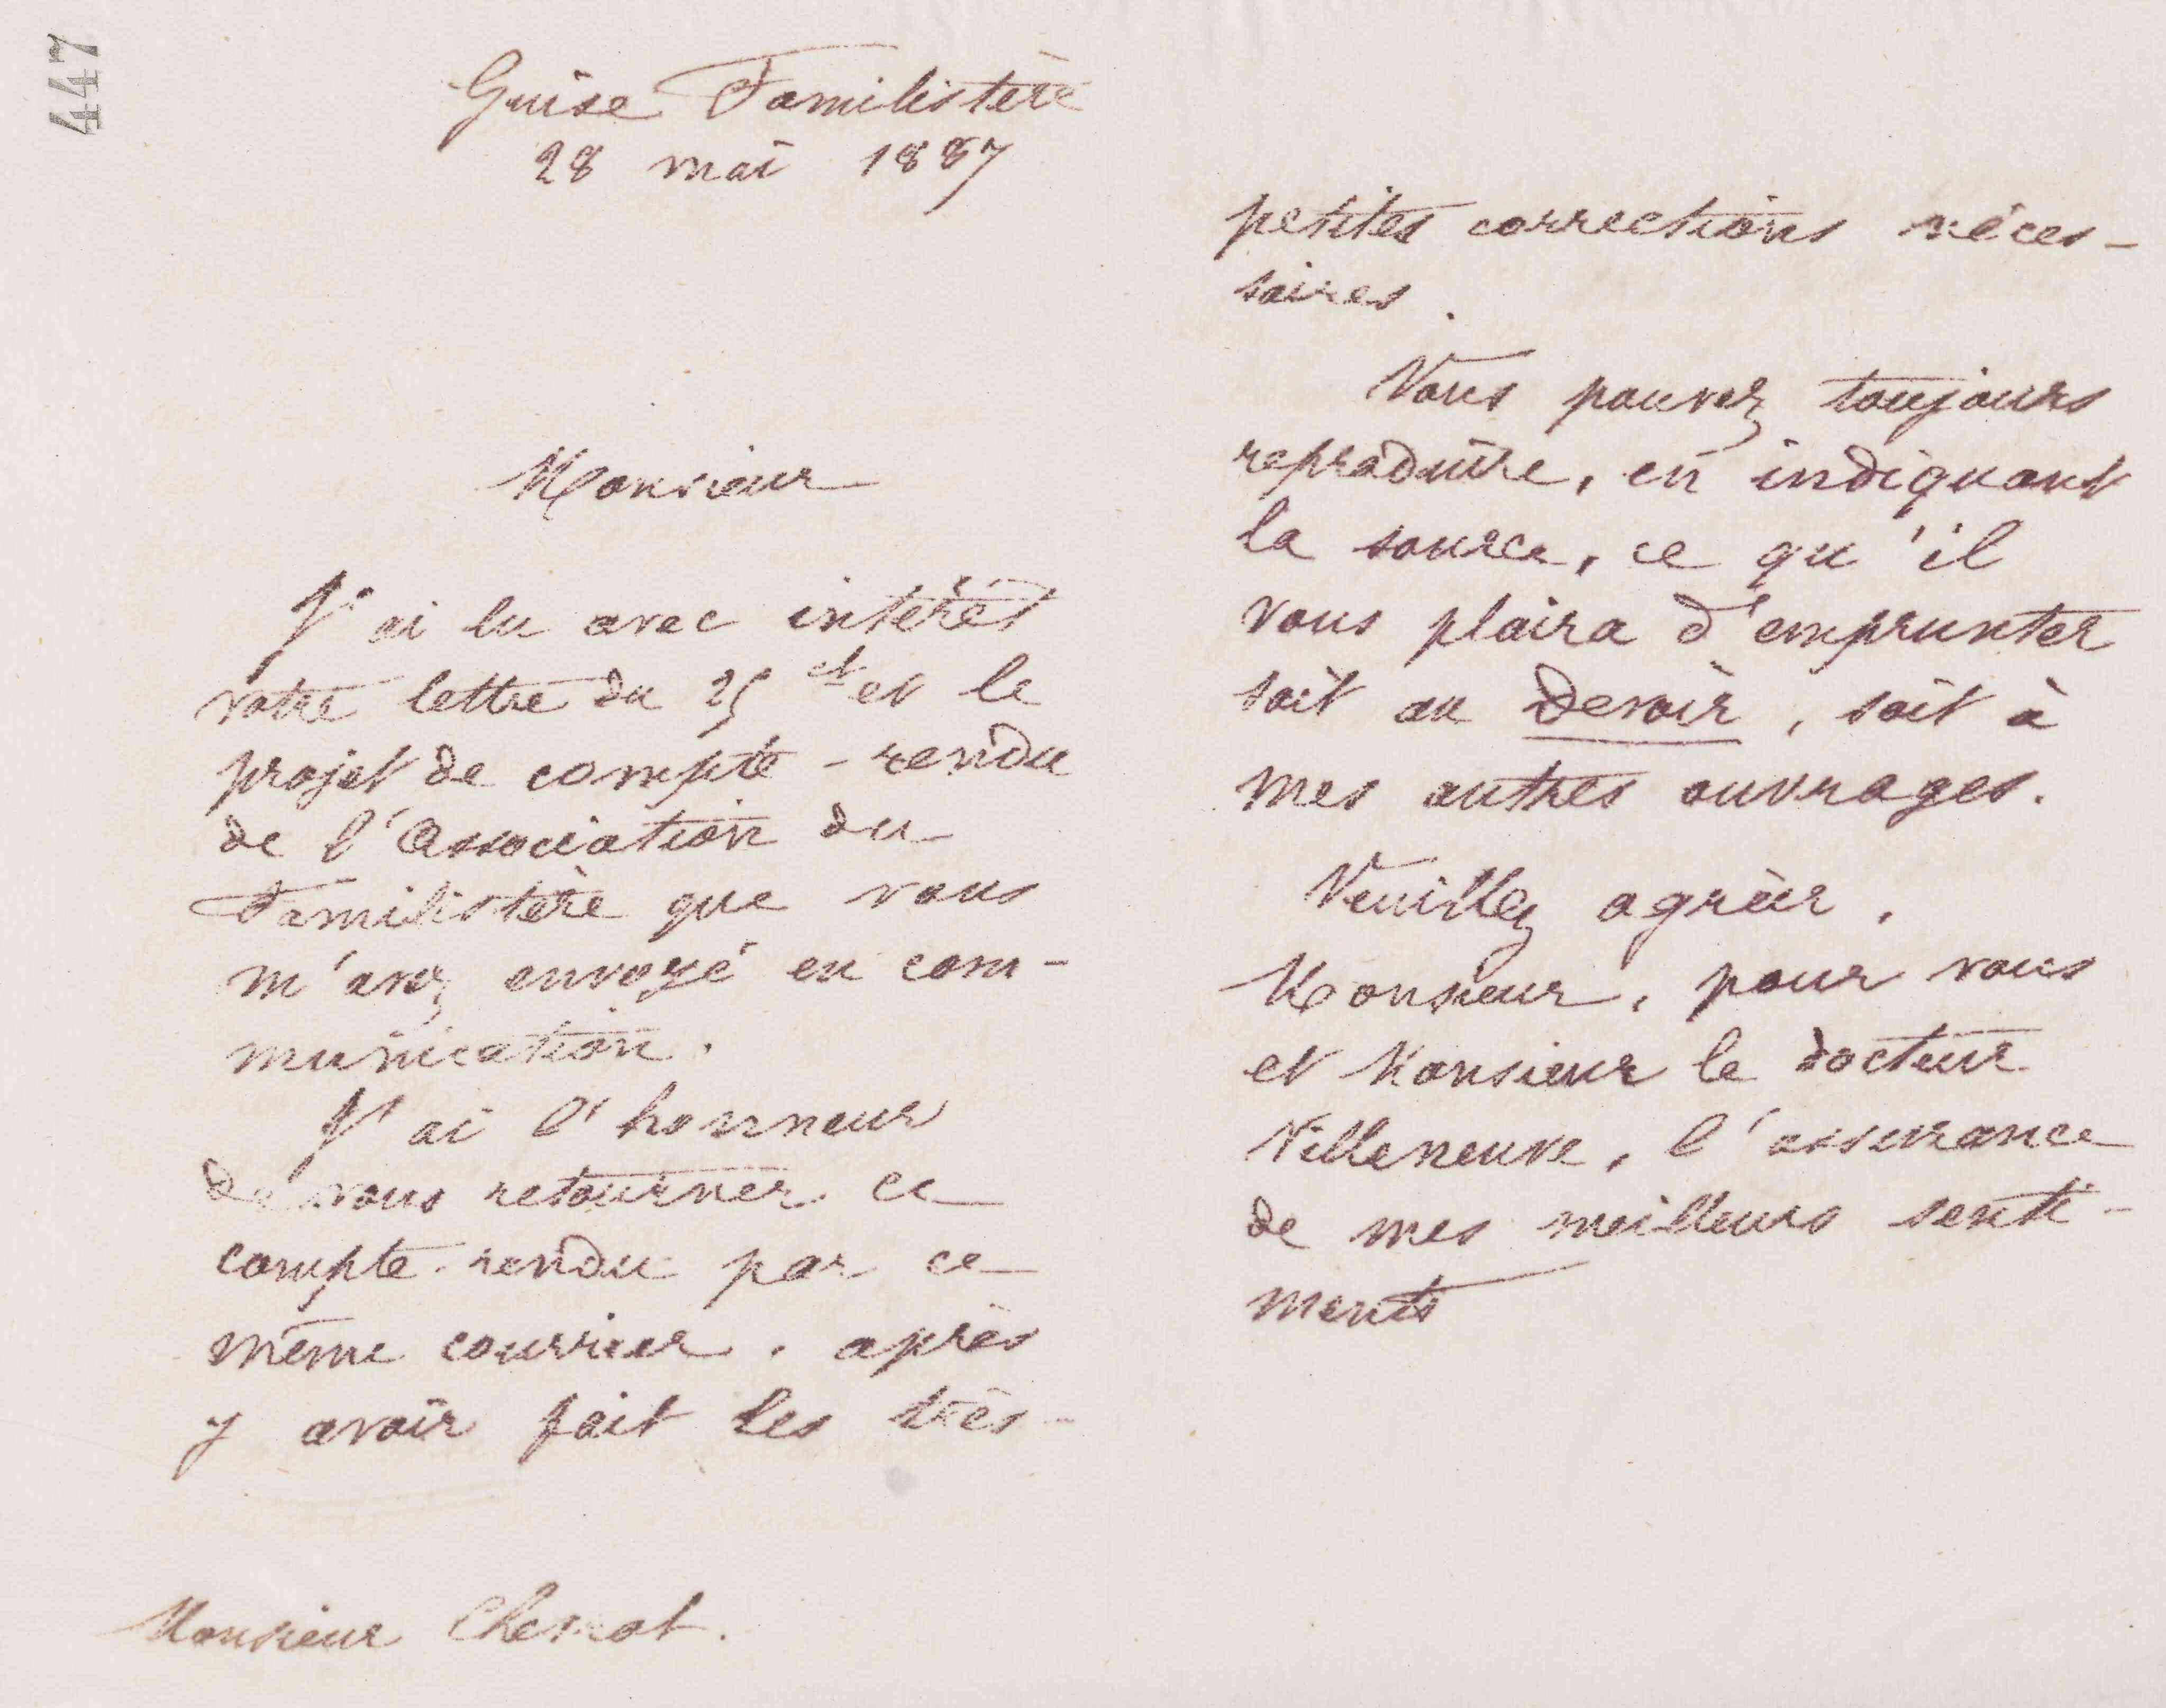 447
Guise Familistère
28 mai 1887
Monsieur
J'ai lu avec intérêt
votre lettre du 25 ct et le
projet de compte-rendu
de l'Association du
Familistère que vous
m'avez envoyé en com-
munication.
J'ai l'honneur
de vous retourner ce
compte-rendu par ce
même courrier, après
y avoir fait les très
Monsieur
petites corrections néces-
saires.
Vous pouvez toujours
reproduire, en indiquant
la source, ce qu'il
vous plaira d'emprunter
soit au Devoir, soit à
mes autres ouvrages.
Veuillez agréer,
Monsieur, pour vous
et Monsieur le docteur
Villeneuve, l'assurance
de mes meilleurs senti-
ments